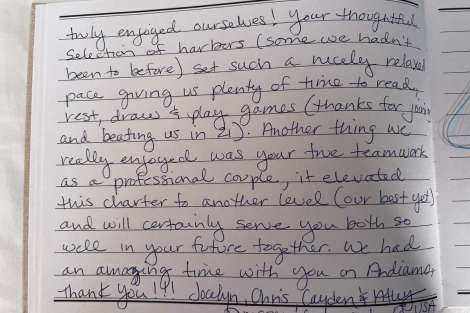 truly enjoyed ourselves! Your thoughtful
selection of harbers (some we hadn't
been to before) set such a nicely relaxed
pace giving us plenty of time to read,
rest, draw & play games (thanks for joining
and beating us in 21). Another thing we
really enjoyed was your true teamwork
as a professional couple, it elevated
this charter to another level (our best yet)
and will certainly serve you both so
well in your future together. We had
an amazing time with you on Andiamo,
thank you!!! Jocelyn, Chris Cayden &
USA